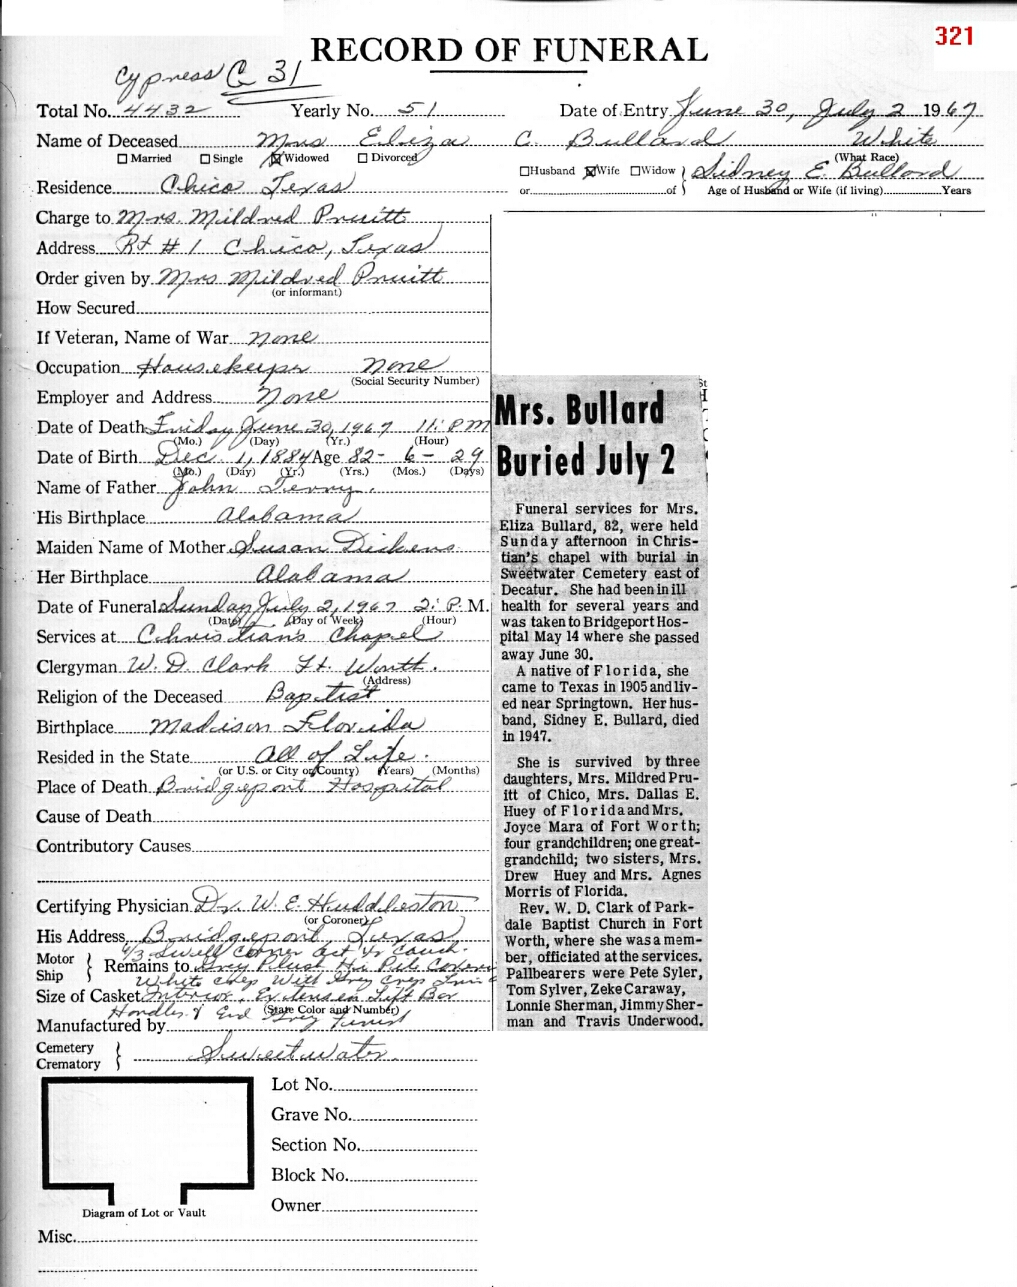 321
RECORD OF FUNERAL
Cypress G 31
Total No. 4432 Yearly No. 51 Date of Entry June 30, July 2 1967
Name of Deceased Mrs Eliza C. Bullard White
☐ Married ☐ Single ☒ Widowed ☐ Divorced (What Race)
☐ Husband ☒ Wife ☐ Widow } Sidney E Bullard
or of Age of Husband or Wife (if living) Years
Residence Chico Texas
Charge to Mrs. Mildred Pruitt
Address Rt #1 Chico, Texas
Order given by Mrs Mildred Pruitt
(or informant)
How Secured
If Veteran, Name of War none
Occupation Housekeeper none
(Social Security Number)
Employer and Address None
Date of Death Friday June 30, 1967 11: P M
(Mo.) (Day) (Yr.) (Hour)
Date of Birth Dec 1, 1884 Age 82- 6- 29
(Mo.) (Day) (Yr.) (Yrs.) (Mos.) (Days)
Name of Father John Terry.
His Birthplace Alabama
Maiden Name of Mother Susan Dickens
Her Birthplace Alabama
Date of Funeral Sunday July 2, 1967 2: P. M.
(Date) (Day of Week) (Hour)
Services at Christians Chapel
Clergyman W. D. Clark Ft. Worth.
(Address)
Religion of the Deceased Baptist
Birthplace Madison Florida
Resided in the State All of Life.
(or U.S. or City or County) (Years) (Months)
Place of Death Bridgeport Hospital
Cause of Death
Contributory Causes
Certifying Physician Dr. W. E. Huddleston
(or Coroner)
His Address Bridgeport, Texas
6/3 Swell Corner Oct
Motor
Ship } Remains to Grey Plush
White Crep With Grey Crep
Size of Casket Interior, Extension Lift Bar
Handles & End Grey Finish (State Color and Number)
Manufactured by
Cemetery
Crematory } Sweetwater
Lot No.
Grave No.
Section No.
Block No.
Owner
Diagram of Lot or Vault
Misc.
Mrs. Bullard
Buried July 2
Funeral services for Mrs.
Eliza Bullard, 82, were held
Sunday afternoon in Chris-
tian's chapel with burial in
Sweetwater Cemetery east of
Decatur. She had been in ill
health for several years and
was taken to Bridgeport Hos-
pital May 14 where she passed
away June 30.
A native of Florida, she
came to Texas in 1905 and liv-
ed near Springtown. Her hus-
band, Sidney E. Bullard, died
in 1947.
She is survived by three
daughters, Mrs. Mildred Pru-
itt of Chico, Mrs. Dallas E.
Huey of Florida and Mrs.
Joyce Mara of Fort Worth;
four grandchildren; one great-
grandchild; two sisters, Mrs.
Drew Huey and Mrs. Agnes
Morris of Florida.
Rev. W. D. Clark of Park-
dale Baptist Church in Fort
Worth, where she was a mem-
ber, officiated at the services.
Pallbearers were Pete Syler,
Tom Sylver, Zeke Caraway,
Lonnie Sherman, Jimmy Sher-
man and Travis Underwood.